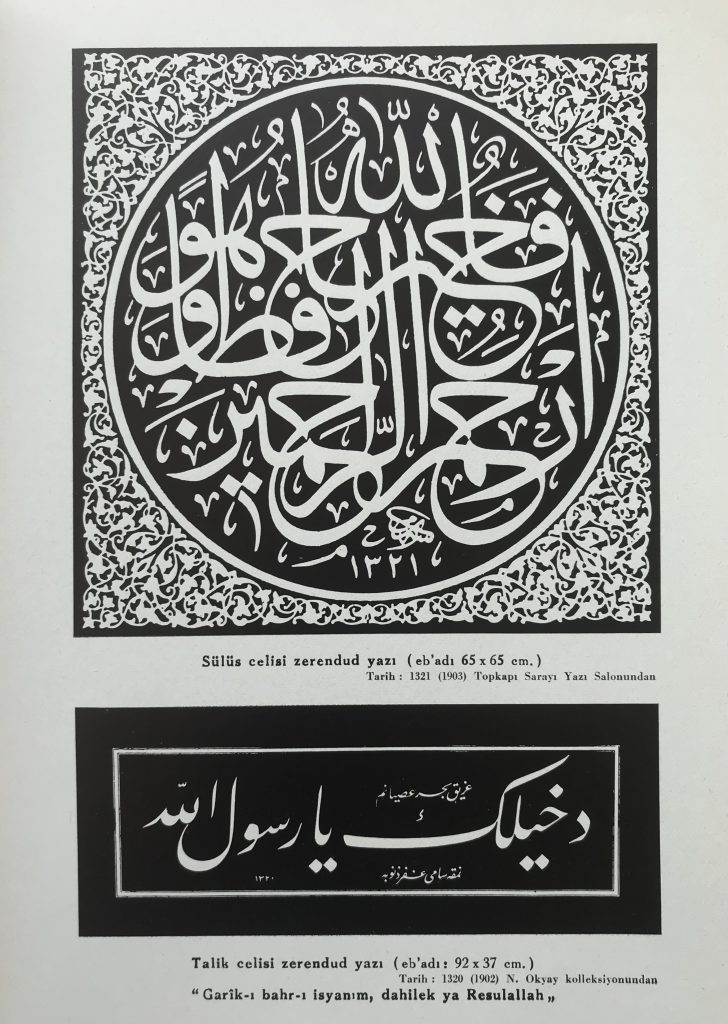 فالله خير حافظا وهو
ارحم الراحمين
١٣٢١
Sülüs celisi zerendud yazı ( eb'adı 65 x 65 cm. )
Tarih : 1321 (1903) Topkapı Sarayı Yazı Salonundan
غريق بحر عصيانم
دخيلك يا رسول الله
نمقه سامى غفر ذنوبه
١٣٢٠
Talik celisi zerendud yazı ( eb'adı: 92 x 37 cm. )
Tarih : 1320 (1902) N. Okyay kolleksiyonundan
“ Garîk-ı bahr-ı isyanım, dahilek ya Resulallah „